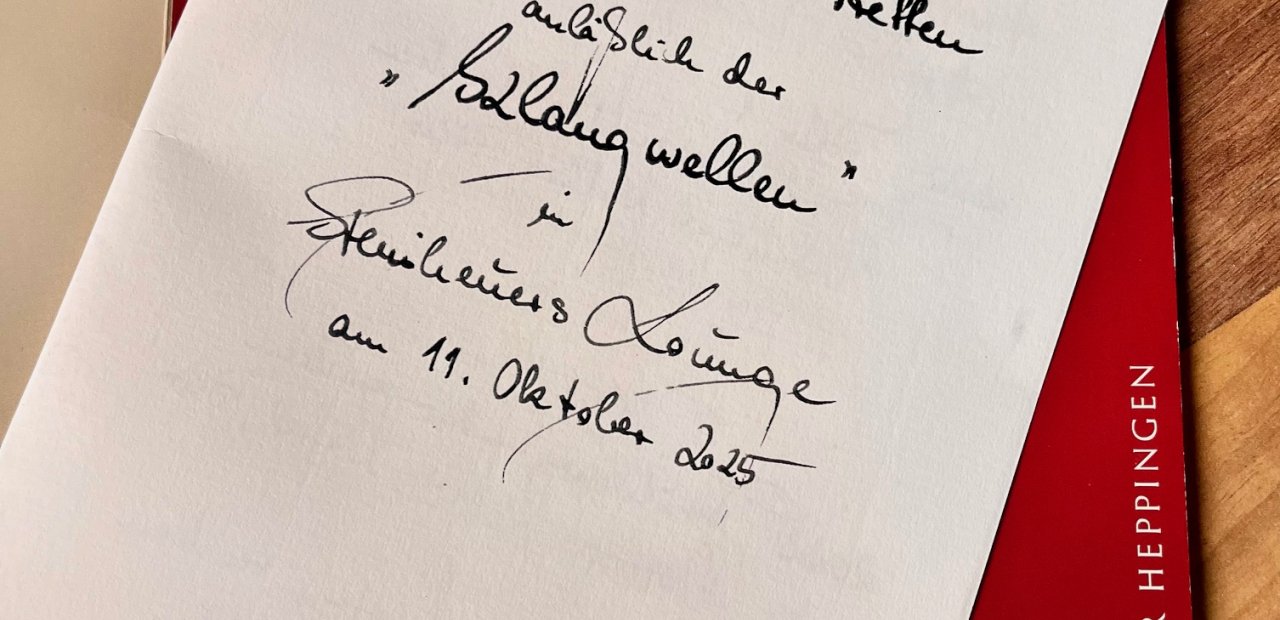 anläßlich der
„Klangwellen”
in
Steinheuers Lounge
am 11. Oktober 2025
R HEPPINGEN